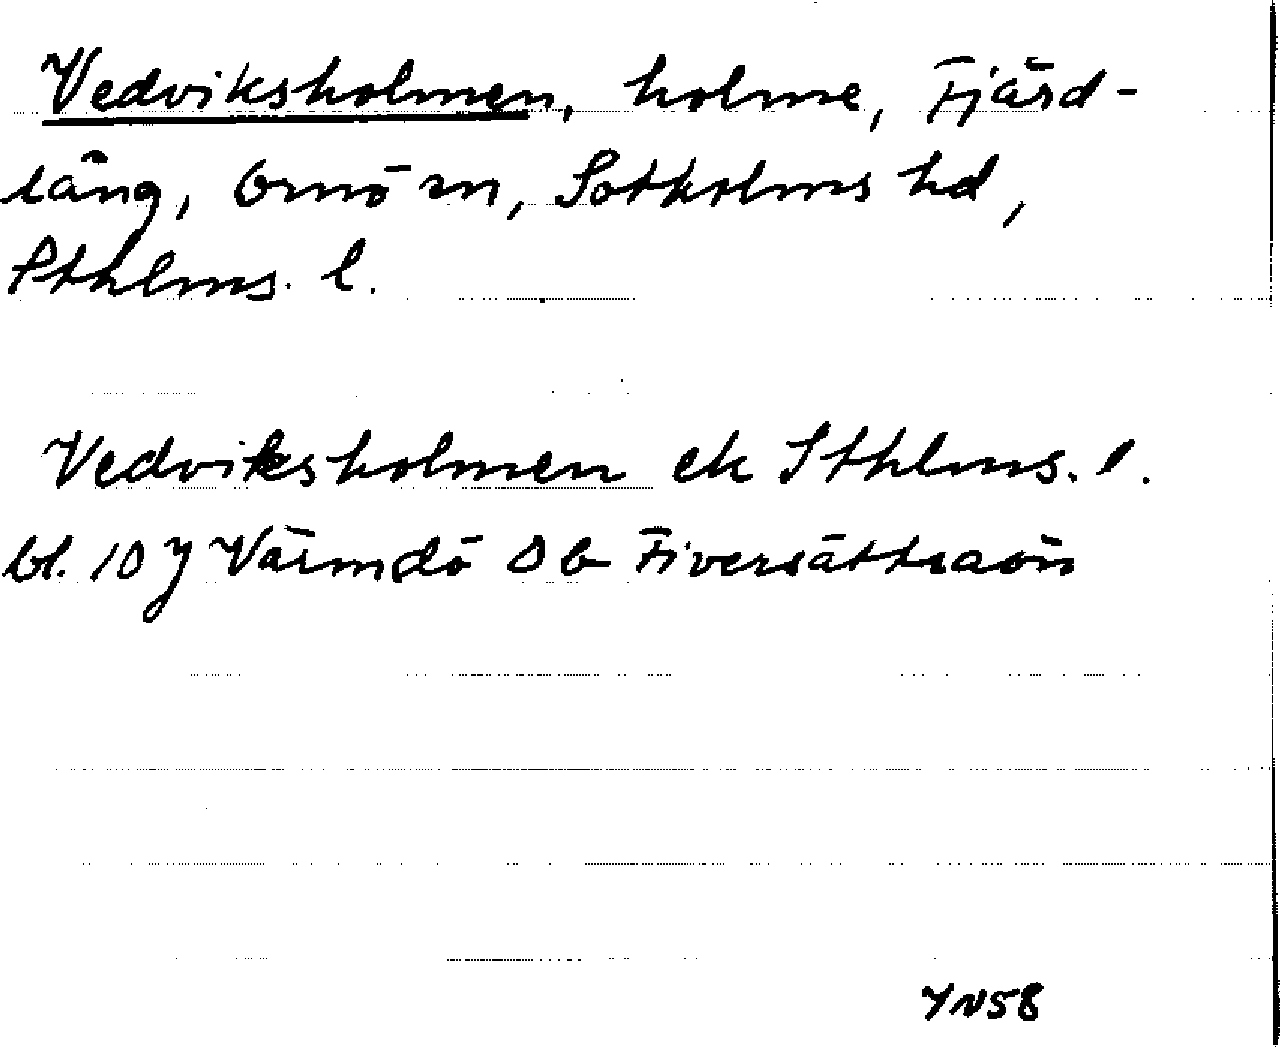 Vedviksholmen, holme, Fjärd-
lång, Ornö sn, Sotholms hd,
Sthlms. l.
Vedviksholmen ek Sthlms. l.
bl. 107 Värmdö Ob Fiversättraön
YN58